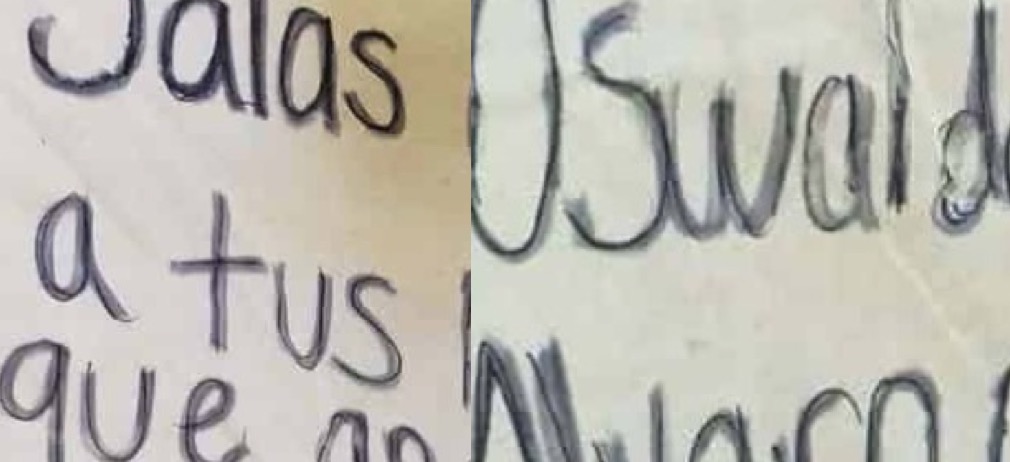 Jalas
a tus
que no
Oswaldo